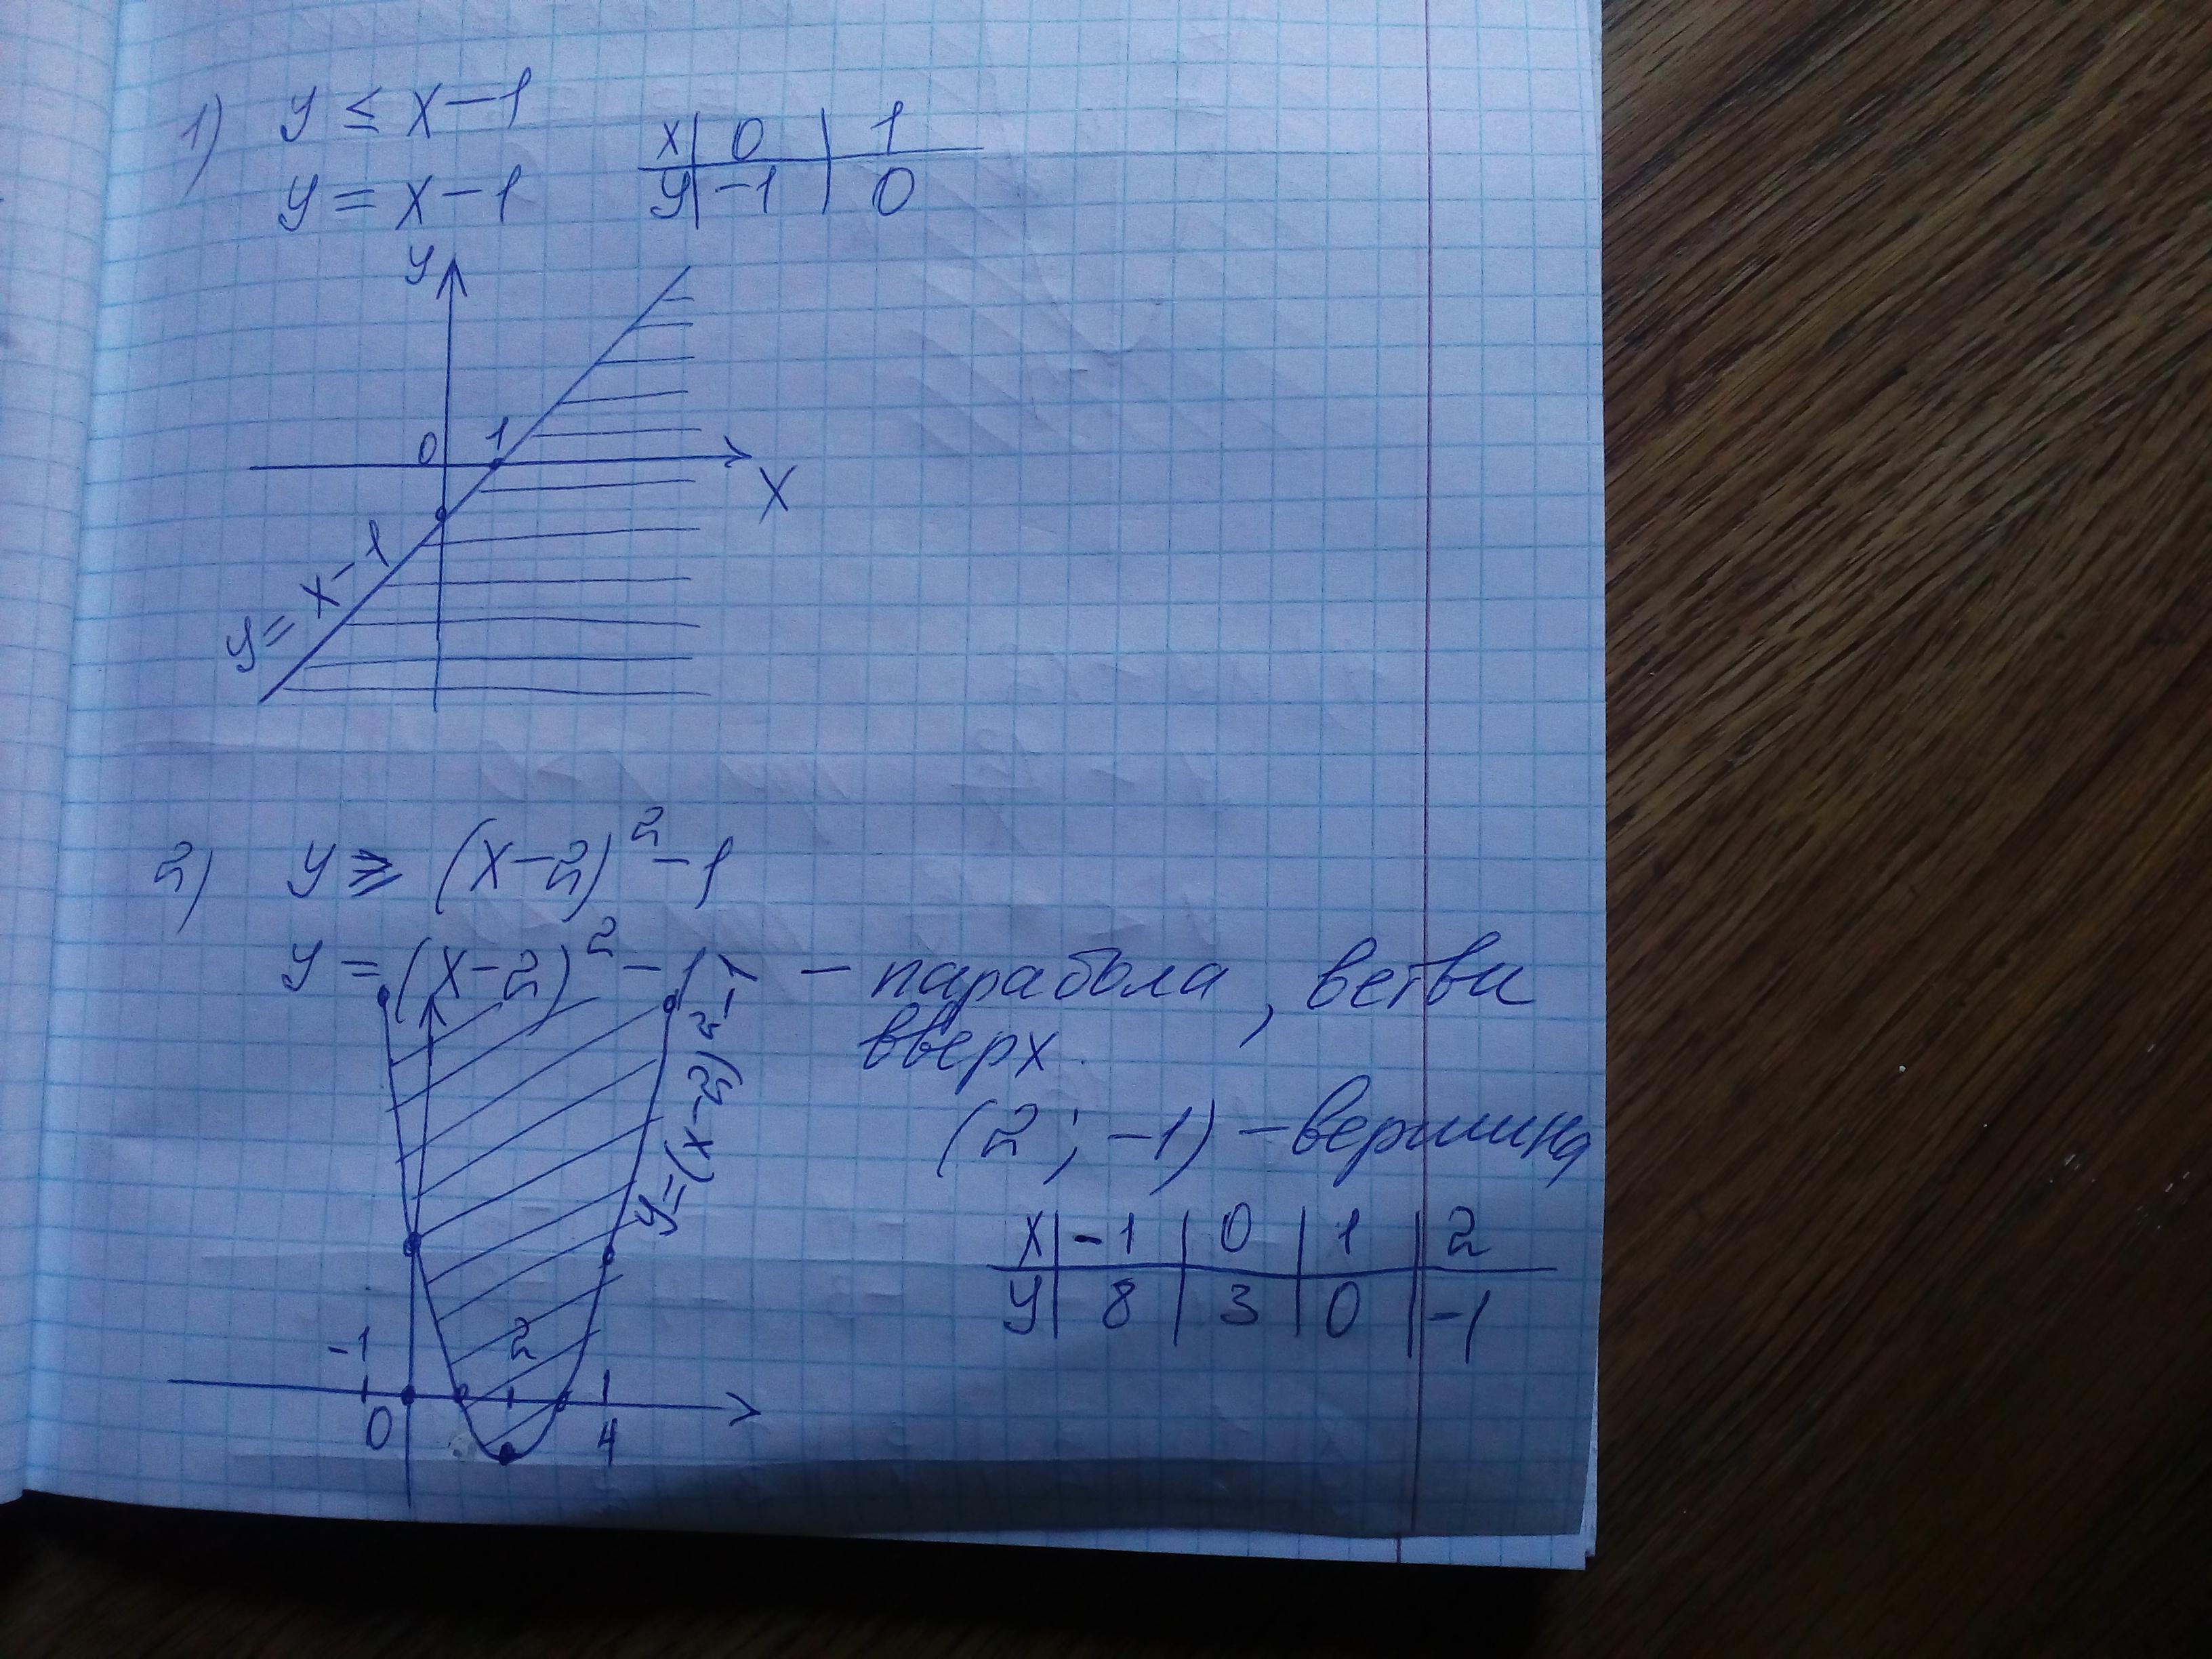 1) y ≤ x-1
y = x-1
x | 0 | 1
y | -1 | 0
y
0 1
x
y = x-1
2) y ⩾ (x-2)² -1
y = (x-2)² -1 - парабола, ветви
вверх.
(2; -1) - вершина
y=(x-2)²-1
x | -1 | 0 | 1 | 2
y | 8 | 3 | 0 | -1
-1 2
0 4